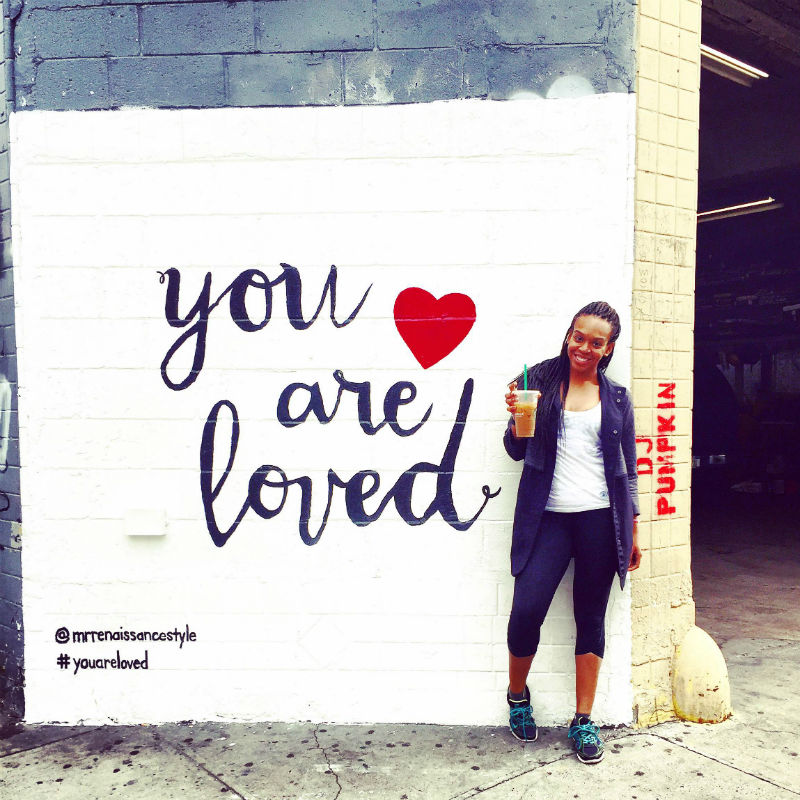 you
are
loved
@mrrenaissancestyle
#youareloved
DJ
PUMPKIN